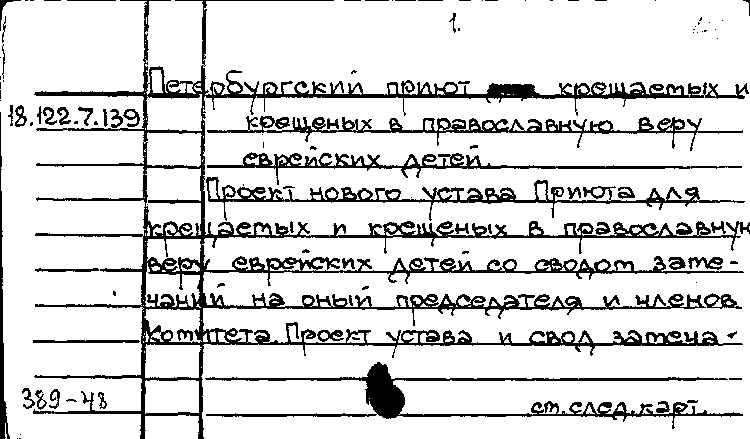 1.
Петербургский приют крещаемых и
18.122.7.139 крещеных в православную веру
еврейских детей.
Проект нового устава Приюта для
крещаемых и крещеных в православную
веру еврейских детей со сводом заме-
чаний на оный председателя и членов
Комитета. Проект устава и свод замеча-
389-48 см. след. карт.